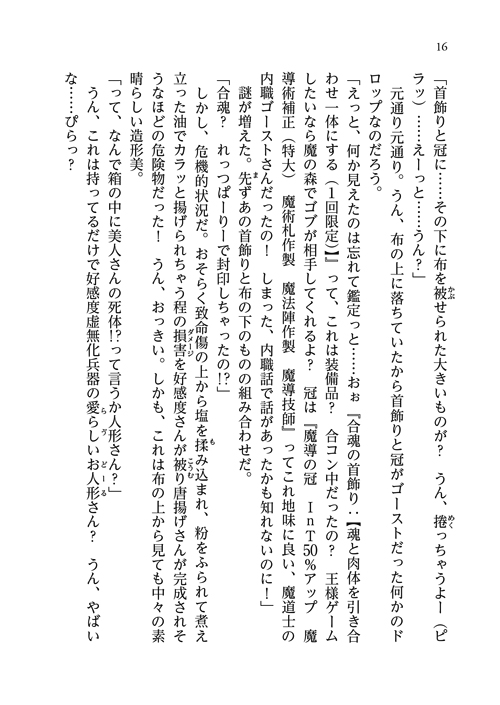 16
「首飾りと冠に……その下に布を被せられた大きいものが？　うん、捲っちゃうよー（ピ
ラッ）……えーっと……うん？」
　元通り元通り。うん、布の上に落ちていたから首飾りと冠がゴーストだった何かのド
ロップなのだろう。
「えっと、何か見えたのは忘れて鑑定っと……おぉ『合魂の首飾り：【魂と肉体を引き合
わせ一体にする（１回限定）】』って、これは装備品？　合コン中だったの？　王様ゲーム
したいなら魔の森でゴブが相手してくれるよ？　冠は『魔導の冠　ＩｎＴ50％アップ　魔
導術補正（特大）　魔術札作製　魔法陣作製　魔導技師』ってこれ地味に良い、魔道士の
内職ゴーストさんだったの！　しまった、内職話で話があったかも知れないのに！」
　謎が増えた。先ずあの首飾りと布の下のものの組み合わせだ。
「合魂？　れっつぱーりーで封印しちゃったの!?」
　しかし、危機的状況だ。おそらく致命傷の上から塩を揉み込まれ、粉をふられて煮え
立った油でカラッと揚げられちゃう程の損害を好感度さんが被り唐揚げさんが完成されそ
うなほどの危険物だった！　うん、おっきい。しかも、これは布の上から見ても中々の素
晴らしい造形美。
「って、なんで箱の中に美人さんの死体!?って言うか人形さん？」
　うん、これは持ってるだけで好感度虚無化兵器の愛らしいお人形さん？　うん、やばい
な……ぴらっ？